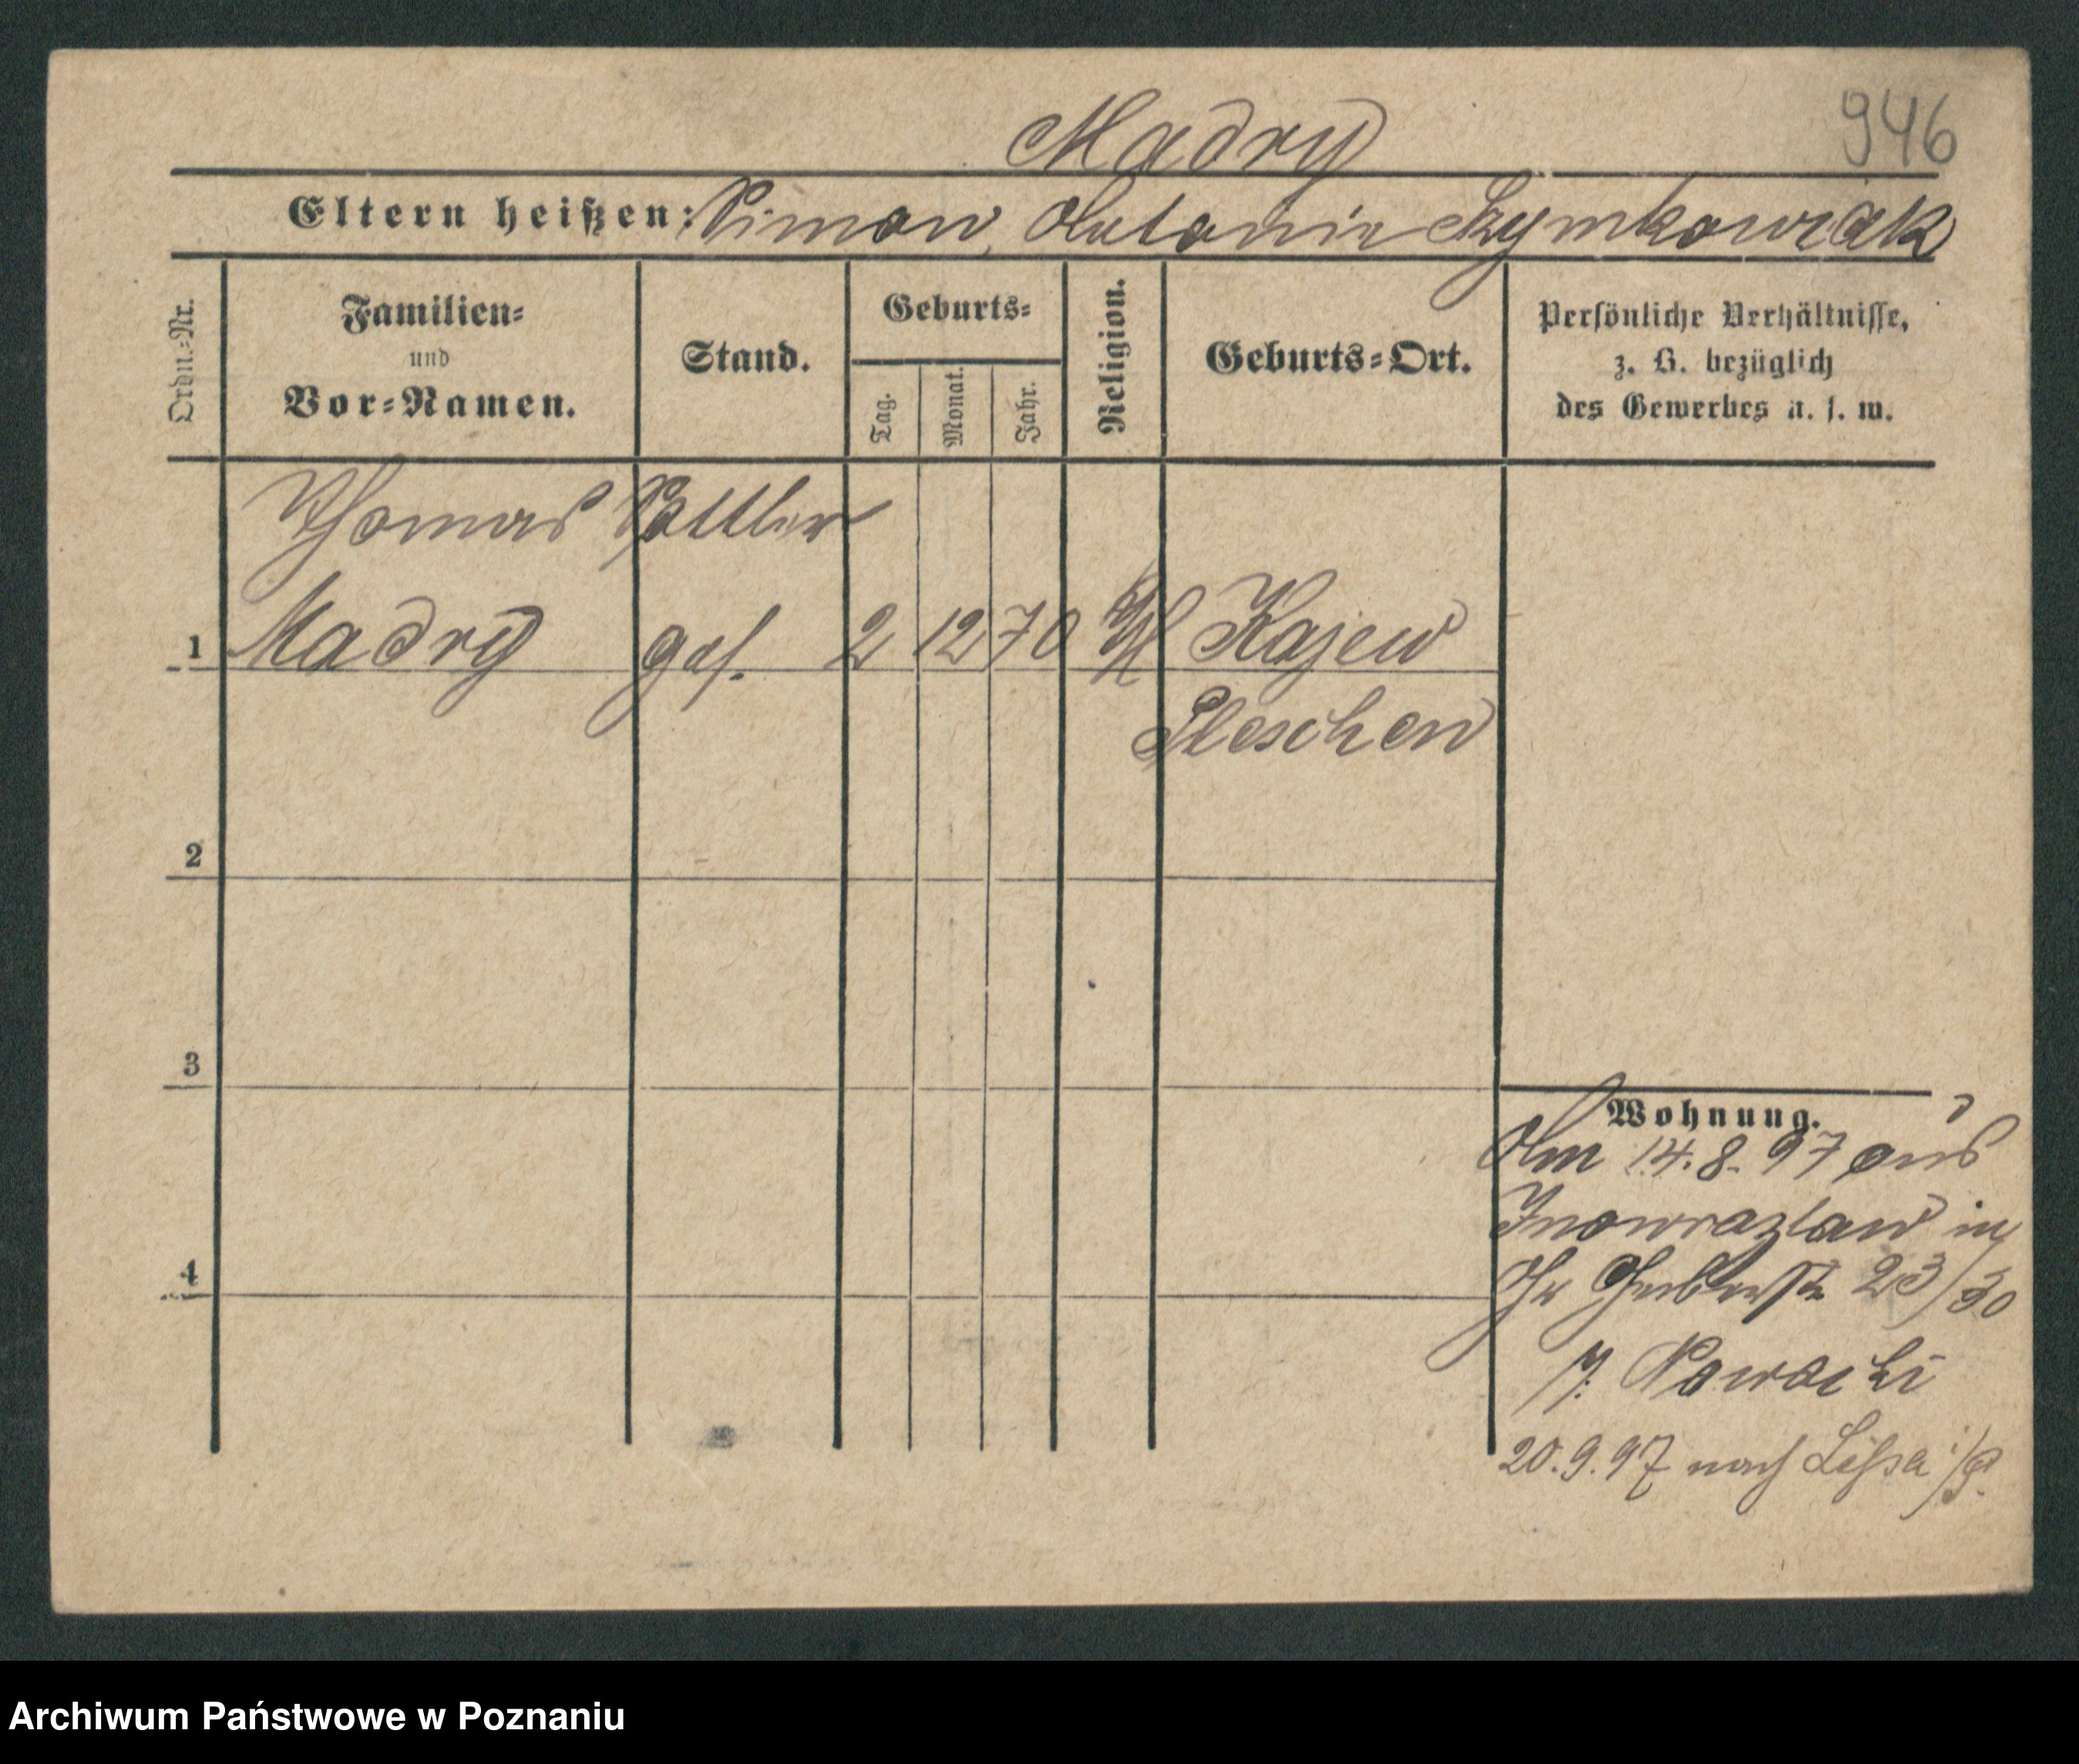 Madry 946
Eltern heißen: Simon, Antonie Szymkowiak
Ordn.-Nr.
Familien-
und
Vor-Namen.
Stand.
Geburts-
Tag.
Monat.
Jahr.
Religion.
Geburts-Ort.
Persönliche Verhältnisse,
z. B. bezüglich
des Gewerbes u. s. w.
Thomas Sattler
1 Madry ges. 2 12 70 Kajew
Pleschen
2
3
4
Wohnung.
Am 14.8.97 aus
Inowrazlaw in
23/30
Nowacki
20.9.97 nach Lissa i/P.
Archiwum Państwowe w Poznaniu